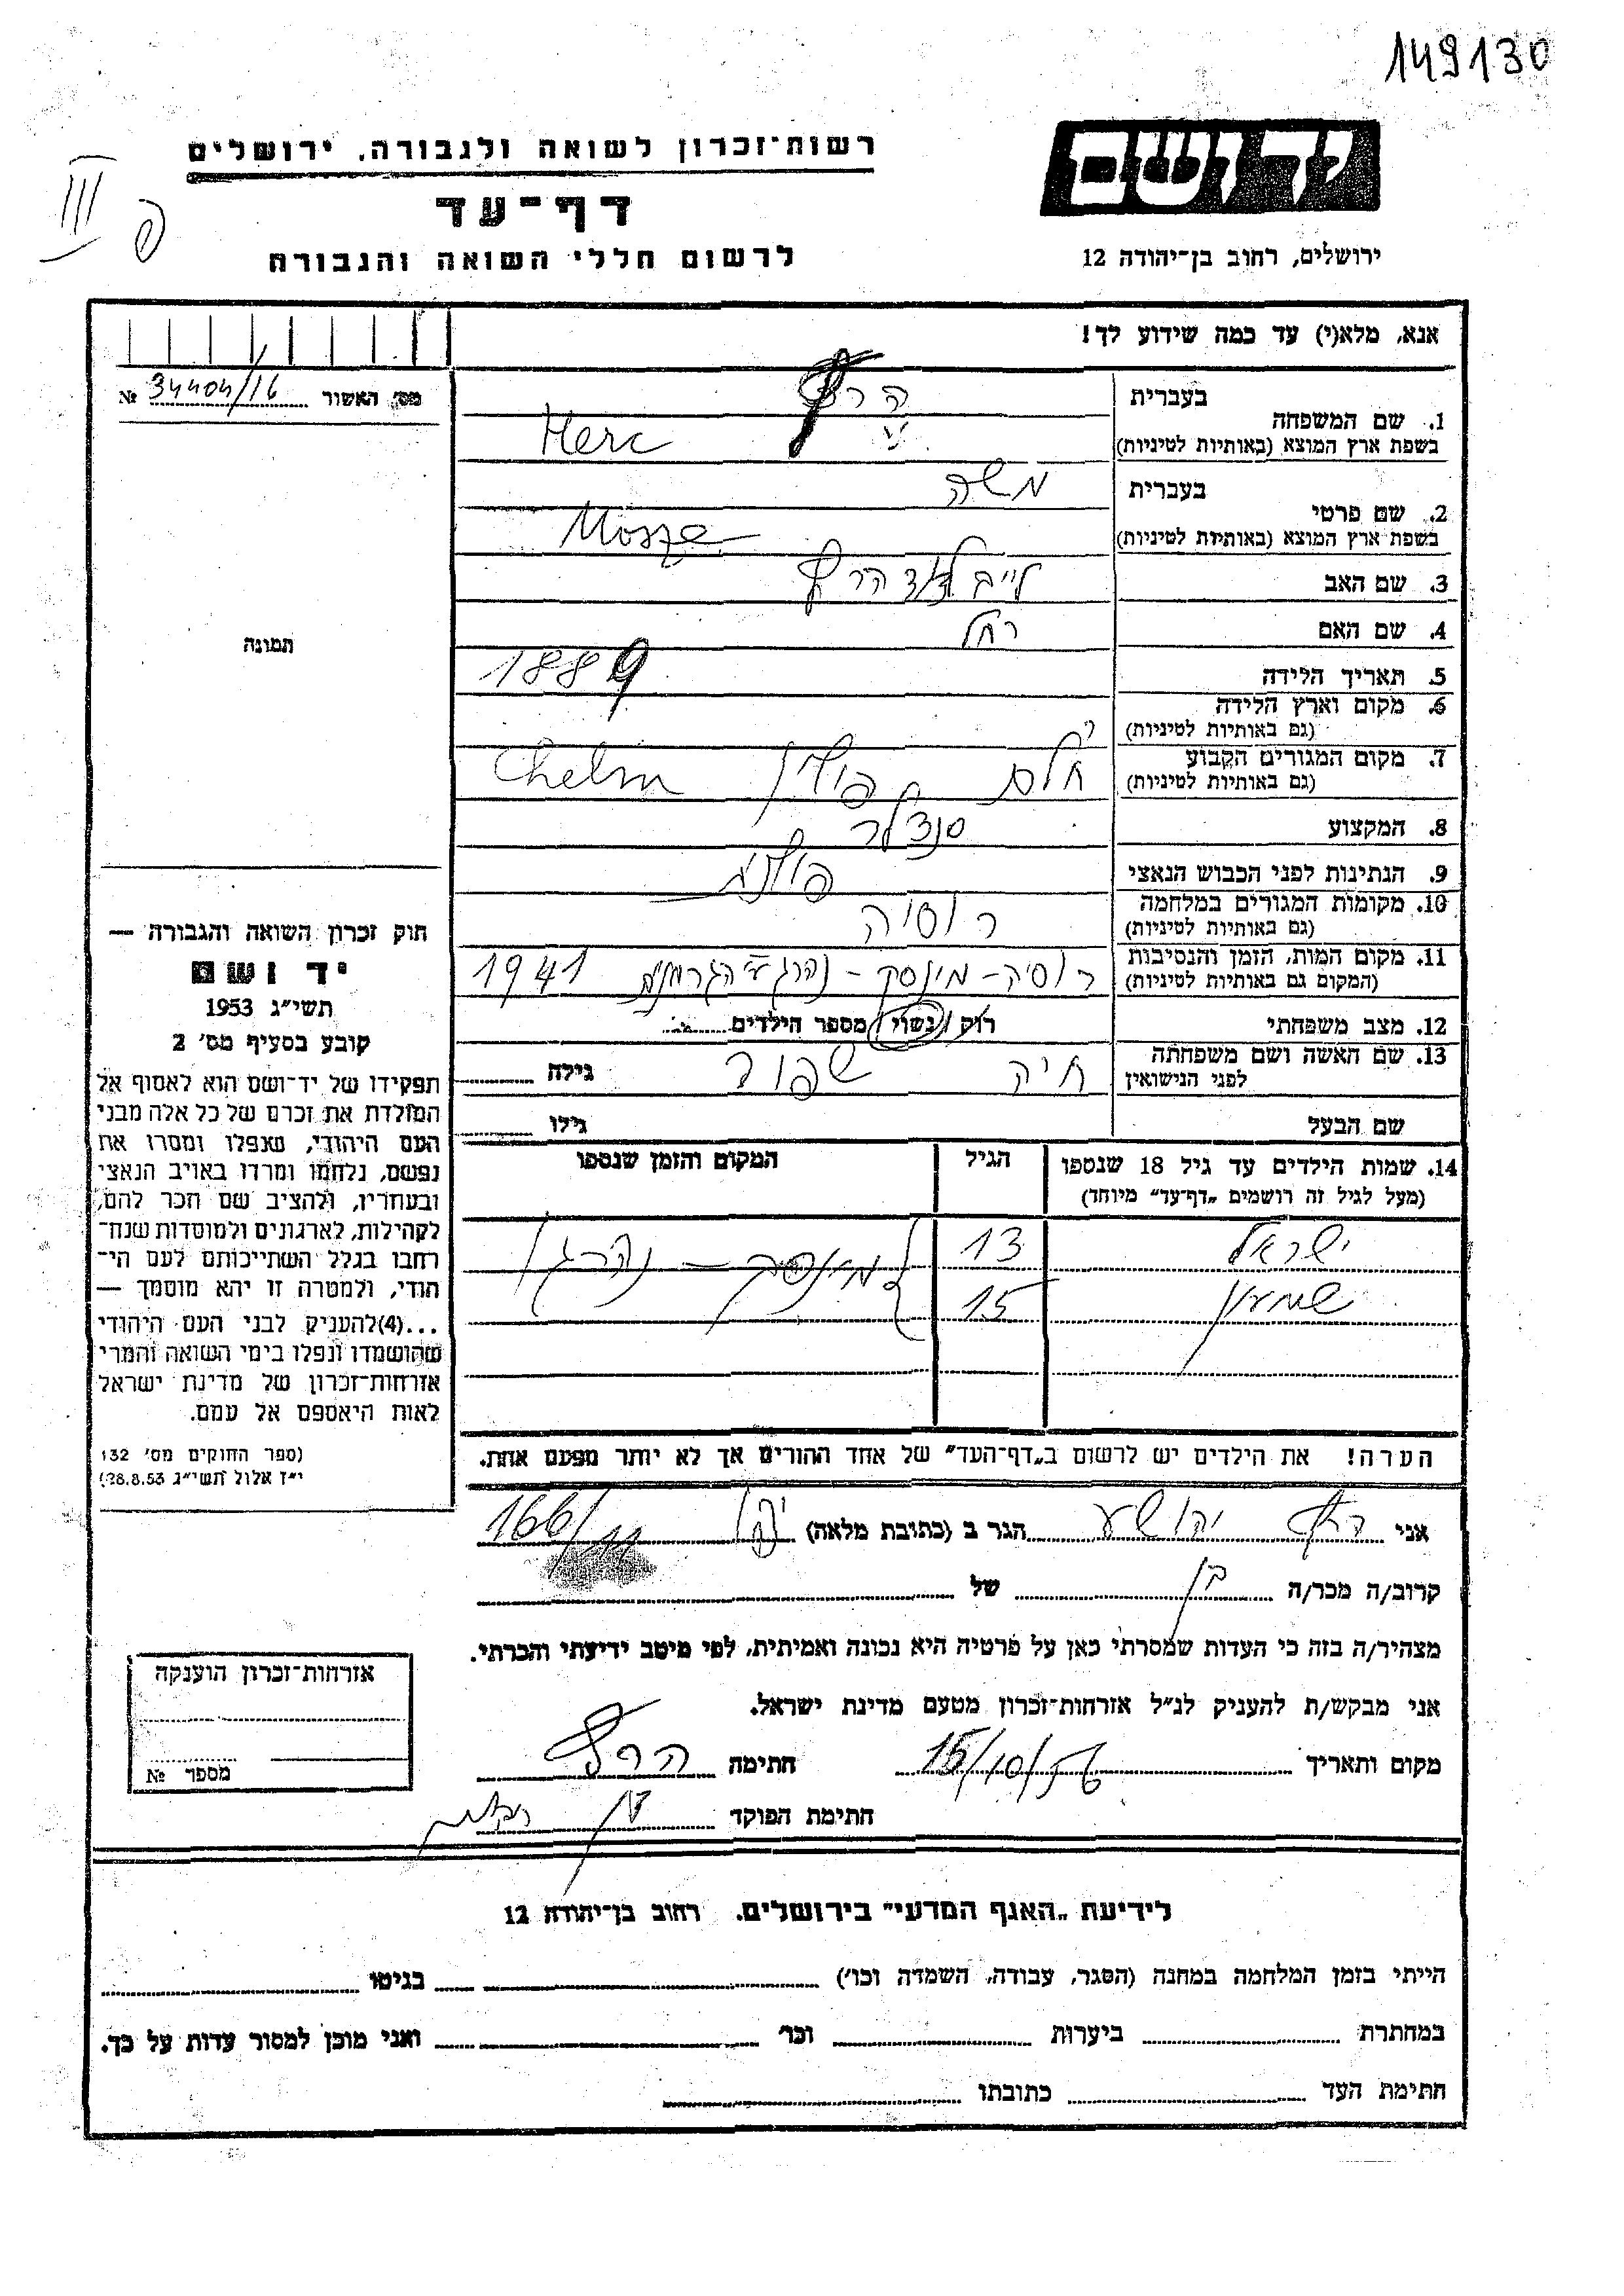 149130
ידושם
רשות־זכרון לשואה ולגבורה, ירושלים
דף־עד
לרשום חללי השואה והגבורה
ירושלים, רחוב בן־יהודה 12
III
פ
אנא, מלא(י) עד כמה שידוע לך!
מס׳ האשור 34404/16 №
תמונה
1. שם המשפחה בעברית הרץ
בשפת ארץ המוצא (באותיות לטיניות) Herc
2. שם פרטי בעברית משה
בשפת ארץ המוצא (באותיות לטיניות) Mosze
3. שם האב לייב הרץ
4. שם האם רחל
5. תאריך הלידה 1889
6. מקום וארץ הלידה
(גם באותיות לטיניות)
7. מקום המגורים הקבוע חלם פולין Chelm
(גם באותיות לטיניות)
8. המקצוע סנדלר
9. הנתינות לפני הכבוש הנאצי פולנית
10. מקומות המגורים במלחמה רוסיה
(גם באותיות לטיניות)
11. מקום המות, הזמן והנסיבות רוסיה - מינסק - נהרג ע״י הגרמנים 1941
(המקום גם באותיות לטיניות)
12. מצב משפחתי רוק / נשוי / מספר הילדים
13. שם האשה ושם משפחתה חיה גילה
לפני הנישואין
שם הבעל גילו
14. שמות הילדים עד גיל 18 שנספו הגיל המקום והזמן שנספו
(מעל לגיל זה רושמים „דף־עד״ מיוחד)
ישראל 13 מינסק - נהרגו
שמעון 15
הערה! את הילדים יש לרשום ב„דף־העד״ של אחד ההורים אך לא יותר מפעם אחת.
חוק זכרון השואה והגבורה —
יד ושם
תשי״ג 1953
קובע בסעיף מס׳ 2
תפקידו של יד־ושם הוא לאסוף אל
המולדת את זכרם של כל אלה מבני
העם היהודי, שנפלו ומסרו את
נפשם, נלחמו ומרדו באויב הנאצי
ובעוזריו, ולהציב שם וזכר להם,
לקהילות, לארגונים ולמוסדות שנח־
רבו בגלל השתייכותם לעם הי־
הודי, ולמטרה זו יהא מוסמך —
...(4)להעניק לבני העם היהודי
שהושמדו ונפלו בימי השואה והמרי
אזרחות־זכרון של מדינת ישראל
לאות היאספם אל עמם.
(ספר החוקים מס׳ 132
י״ז אלול תשי״ג 28.8.53)
אני הרץ יהושע הגר ב (כתובת מלאה) יפו 166/11
קרוב/ה מכר/ה בן של
מצהיר/ה בזה כי העדות שמסרתי כאן על פרטיה היא נכונה ואמיתית, לפי מיטב ידיעתי והכרתי.
אני מבקש/ת להעניק לנ״ל אזרחות־זכרון מטעם מדינת ישראל.
מקום ותאריך 15/10/ חתימה הרץ
חתימת הפוקד
אזרחות־זכרון הוענקה
מספר №
לידיעת „האגף המדעי״ בירושלים. רחוב בן־יהודה 12
הייתי בזמן המלחמה במחנה (הסגר, עבודה, השמדה וכו׳) בגיטו
במחתרת ביערות וכו׳ ואני מוכן למסור עדות על כך.
חתימת העד כתובתו